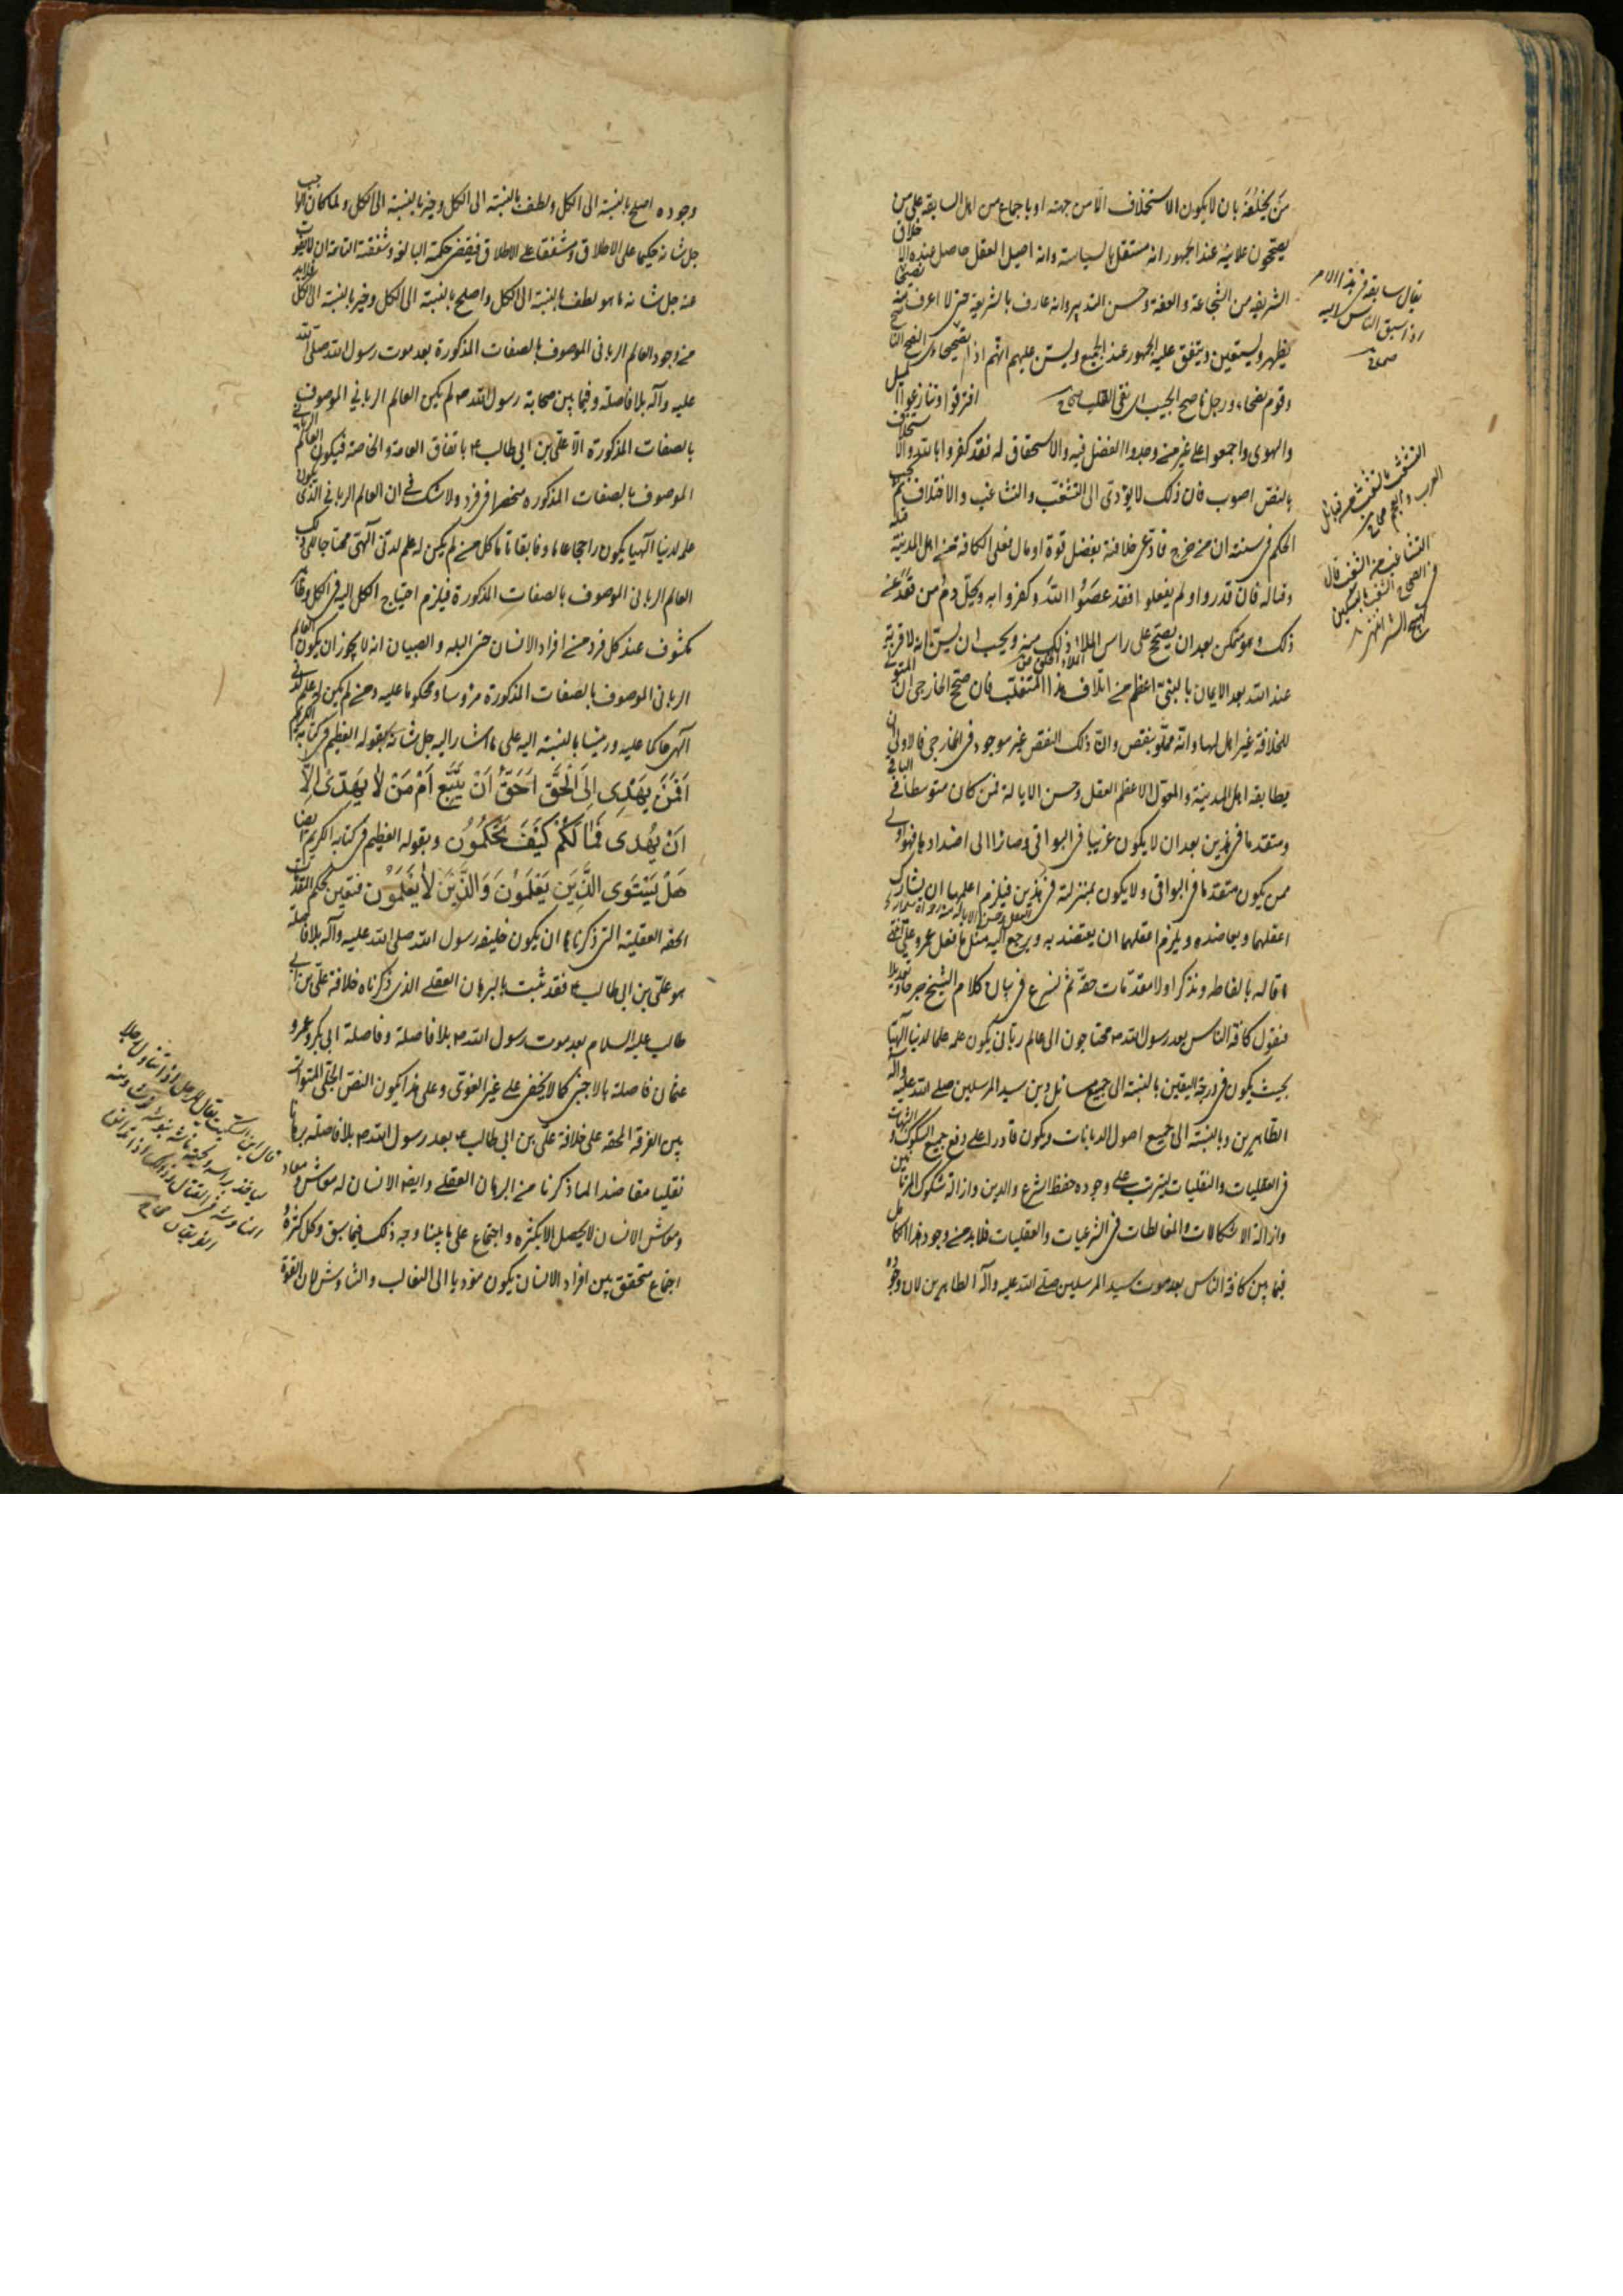 من يخلفه بان لا يكون الاستخلاف الا من جهته او باجماع من اهل السابقه على من
يصححون علانية عند الجمهور انه مستقل بالسياسة وانه اصيل العقل حاصل عنده الاخلاق
الشريفه من الشجاعة والعفة وحسن التدبير وانه عارف بالشريعة حتى لا اعرف منه تصحيحا
يظهر ويستعلن ويتفق عليه الجمهور عند الجميع ويسن عليهم انهم اذا
افترقوا او تنازعوا
وقوم نصحاء ورجل ناصح الجيب اى نقى القلب صحاح
والهوى واجمعوا على غير من وجدوا الفضل فيه والاستحقاق له فقد كفروا بالله والاستخلاف
بالنص اصوب فان ذلك لا يؤدى الى التشعب والتشاغب والاختلاف ثم يجب
الحكم فى سنته ان من خرج فادعى خلافته بفضل قوة او مال فعلى الكافة من اهل المدينة قتاله
وقتاله فان قدروا ولم يفعلوا فقد عصوا الله وكفروا به ويحل دم من قعد عن
ذلك وهو متمكن بعد ان يصحح على راس الملاء ذلك منه ويجب ان يسن انه لا قربة
عند الله بعد الايمان بالنبى اعظم من اتلاف هذا المتغلب فان صحح الخارجى ان المتولى
للخلافة غير اهل لها وانه ممنو بنقص وان ذلك النقص غير موجود فى الخارجى فالاولى ان
يطابقه اهل المدينة والمعول الاعظم العقل وحسن الايالة فمن كان متوسطا فى الباقى
ومتقدما فى هذين بعد ان لا يكون غريبا فى البواقى وصائرا الى اضدادها فهو اولى
ممن يكون متقدما فى البواقى ولا يكون بمنزلة فى هذين فيلزم اعلمهما ان يشارك
اعقلهما ويعاضده ويلزم اعقلهما ان يعتضد به ويرجع اليه مثل ما فعل عمر وعلى انتهى
ما قاله بالفاظه ونذكر اولا مقدمات حقة ثم نشرع فى بيان كلام الشيخ
فنقول كافة الناس بعد رسول الله ص محتاجون الى عالم ربانى يكون علمه علما لدنيا الهيا
بحيث يكون فى درجة اليقين بالنسبة الى جميع مسائل دين سيد المرسلين صلى الله عليه وآله
الطاهرين وبالنسبة الى جميع اصول الديانات ويكون قادرا على دفع جميع الشكوك والشبهات
فى العقليات والنقليات ليترتب على وجوده حفظ الشرع والدين وازالة شكوك المرتابين
وازالة الاشكالات والمغالطات فى الشرعيات والعقليات فلابد من وجود هذا الكامل
فيما بين كافة الناس بعد موت سيد المرسلين صلى الله عليه وآله الطاهرين لان وجوده
يقال سابقه فى هذا الامر
اذا سبق الناس اليه
صحاح
العرب والعجم صحاح
وجوده اصلح بالنسبة الى الكل ولطف بالنسبة الى الكل وخير بالنسبة الى الكل ولما كان الواجب
جل شانه حكيما على الاطلاق ومشفقا على الاطلاق فيقتضى حكمته البالغة وشفقته التامة ان لا يفوت
عنه جل شانه ما هو لطف بالنسبة الى الكل واصلح بالنسبة الى الكل وخير بالنسبة الى الكل فلابد
من وجود العالم الربانى الموصوف بالصفات المذكورة بعد موت رسول الله صلى الله
عليه وآله بلا فاصلة وفيما بين صحابة رسول الله ص لم يكن العالم الربانى الموصوف
بالصفات المذكورة الا على بن ابى طالب ع باتفاق العامة والخاصة فيكون العالم الربانى
الموصوف بالصفات المذكوره منحصرا فى فرد ولا شك فى ان العالم الربانى الذى يكون
علمه لدنيا الهيا يكون راجحا عاما وفائقا تاما كل من لم يكن له علم لدنى الهى محتاجا الى ذلك
العالم الربانى الموصوف بالصفات المذكورة فيلزم احتياج الكل اليه فى الكل
مكشوف عند كل فرد من افراد الانسان حتى البله والصبيان انه لا يجوز ان يكون العالم
الربانى الموصوف بالصفات المذكورة مرؤسا ومحكوما عليه ومن لم يكن له علم لدنى
الهى حاكما عليه ورئيسا بالنسبة اليه على ما اشار اليه جل شانه بقوله العظيم فى كتابه الكريم
اَفَمَنْ يَهْدِى اِلَى الْحَقِّ اَحَقُّ اَنْ يُتَّبَعَ اَمْ مَنْ لاٰ يَهِدّى اِلاّٰ
اَنْ يُهْدى فَمٰا لَكُمْ كَيْفَ تَحْكُمُونَ وبقوله العظيم فى كتابه الكريم ايضا
هَلْ يَسْتَوِى الَّذِينَ يَعْلَمُونَ وَالَّذِينَ لاٰ يَعْلَمُونَ فتعين بحكم المقدمات
الحقه العقلية التى ذكرناها ان يكون خليفة رسول الله صلى الله عليه وآله بلا فاصلة
هو على بن ابى طالب ع فقد ثبت بالبرهان العقلى الذى ذكرناه خلافة على بن ابى
طالب عليه السلام بعد موت رسول الله ص بلا فاصلة وفاصلة ابى بكر وعمر و
عثمان فاصلة بالاجنبى كما لا يخفى على غير الغوى وعلى هذا يكون النص الجلى المتواتر
بين الفرقة الحقه على خلافة على بن ابى طالب ع بعد رسول الله ص بلا فاصله برهانا
نقليا معاضدا لما ذكرنا من البرهان العقلى وايضا الانسان له معاش ومعاد
ومعاش الانسان لا يحصل الا بكثرة واجتماع على ما بينا وجه ذلك فيما سبق وكل كثرة
اجتماع متحقق بين افراد الانسان يكون مؤديا الى التغالب والتناوش لان القوة
قال ابن السكيت يقال للرجل اذا تناول رجلا
لياخذ براسه ولحيته ناشه ينوشه نوشا ومنه
المناوشة فى القتال وذلك اذا تدانى
الفريقان صحاح